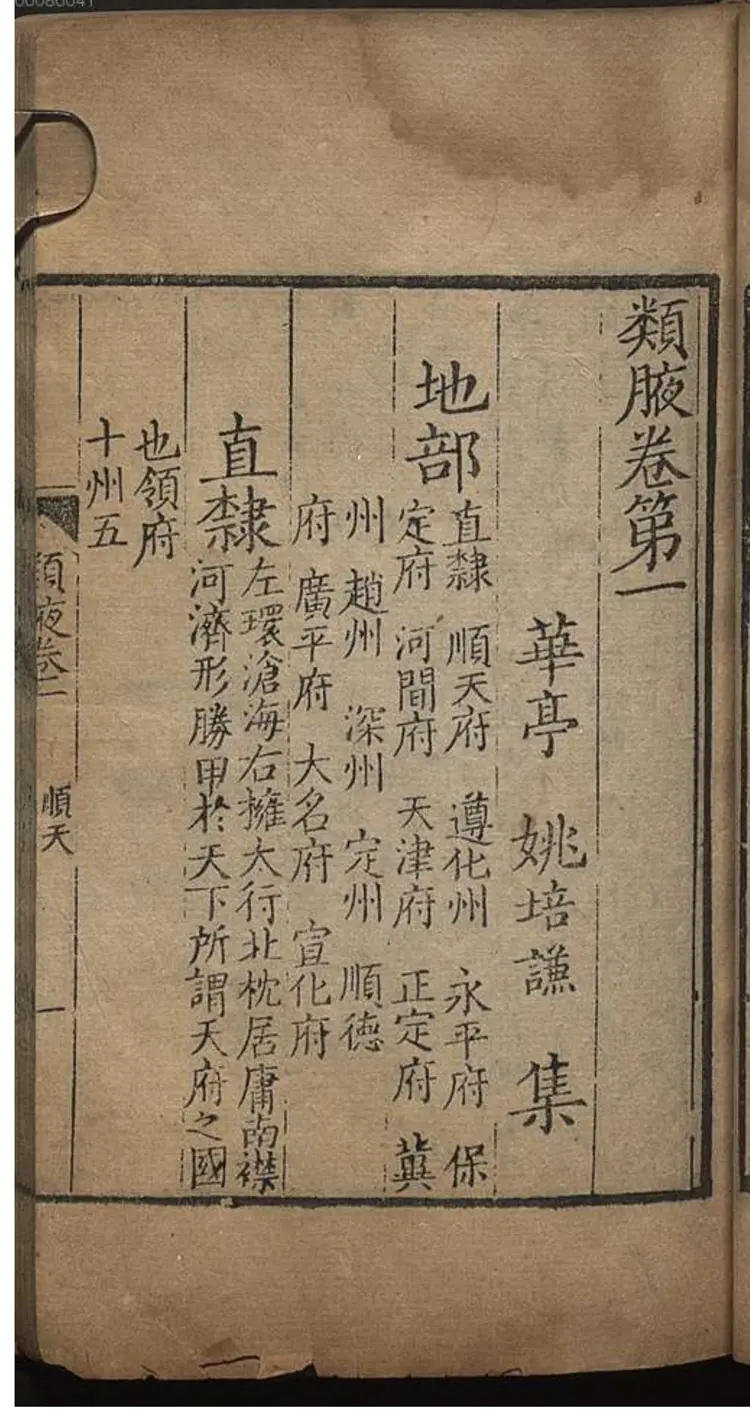 00080041
類腋卷第一
華亭 姚培謙 集
地部
直隸 順天府 遵化州 永平府 保
定府 河間府 天津府 正定府 冀
州 趙州 深州 定州 順德
府 廣平府 大名府 宣化府
直隸
左環滄海右擁太行北枕居庸南襟
河濟形勝甲於天下所謂天府之國
也領府
十州五
類腋卷一
順天
一